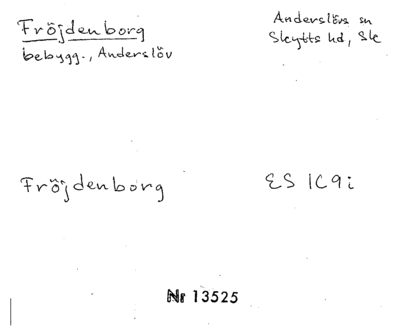 Fröjdenborg
bebygg., Anderslöv
Anderslövs sn
Skytts hd, Sk
Fröjdenborg
ES 1C9i
Nr 13525